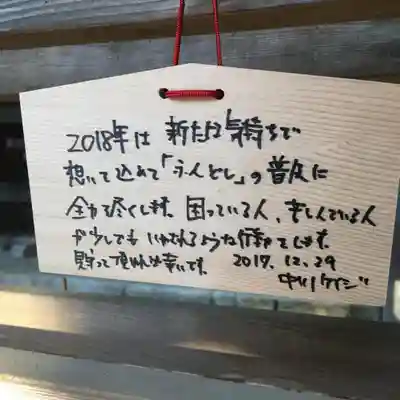 2018年は 新たな気持ちで
想いを込めて「うんとし」の普及に
全力を尽くします。困っている人、苦しんでいる人
が少しでもいやされるような行動をします。
貼って頂ければ幸いです。 2017.12.29
中川ケイジ